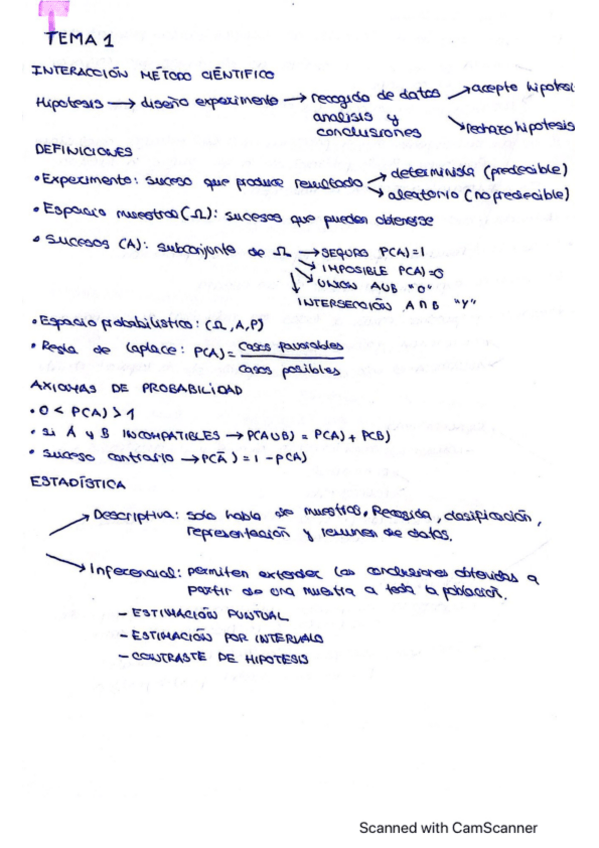 TEMA 1
INTERACCIÓN MÉTODO CIENTIFICO
Hipotesis → diseño experimento → recogida de datos → acepto hipotesi
analisis y
conclusiones → rechazo hipotesis
DEFINICIONES
• Experimento: suceso que produce resultado → determinista (predecible)
→ aleatorio (no predecible)
• Espacio muestral (Ω): sucesos que pueden obtenerse
• Sucesos (A): subconjunto de Ω → SEGURO P(A)=1
→ IMPOSIBLE P(A)=0
→ UNION A∪B "O"
INTERSECCIÓN A∩B "Y"
• Espacio probabilistico: (Ω, A, P)
• Regla de Laplace: P(A) = casos favorables
casos posibles
AXIOMAS DE PROBABILIDAD
• 0 < P(A) > 1
• Si A y B INCOMPATIBLES → P(A∪B) = P(A) + P(B)
• Suceso contrario → P(Ā) = 1 - P(A)
ESTADÍSTICA
→ Descriptiva: solo habla de muestras. Recogida, clasificación,
representación y resumen de datos.
→ Inferencial: permiten extender las conclusiones obtenidas a
partir de una muestra a toda la población.
- ESTIMACIÓN PUNTUAL
- ESTIMACIÓN POR INTERVALO
- CONTRASTE DE HIPOTESIS
Scanned with CamScanner